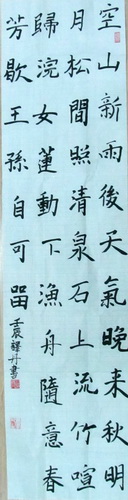 空山新雨後天氣晚来秋明
月松間照清泉石上流竹喧
歸浣女蓮動下漁舟隨意春
芳歇王孫自可留
壬辰 丹書